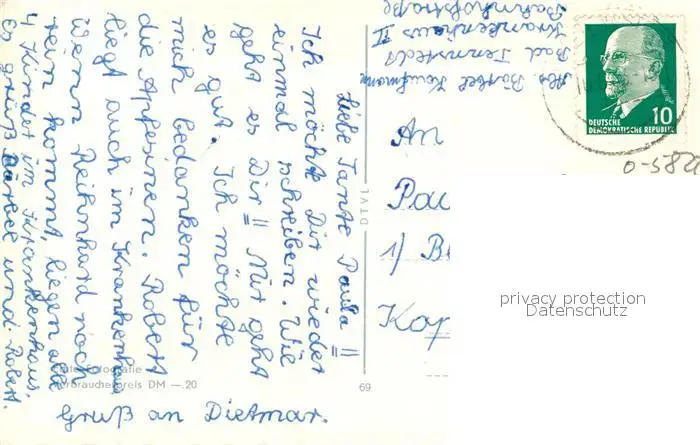 Liebe Tante Paula !!
Ich möchte Dir wieder
einmal schreiben. Wie
geht es Dir !! Mir geht
es gut. Ich möchte
mich bedanken für
die Apfesinen. Robert
liegt auch im Krankenhaus
Wenn Reihnhard noch
rein kommt, liegen alle
4 Kinder im Krankenhaus.
Es grüß Bärbel und Robert.
Gruß an Dietmar.
Abs Bärbel Kaufmann
Bad Tennstedt
Krankenhaus II
Bahnhofstraße
An
1) B
Kop
10
DEUTSCHE
DEMOKRATISCHE REPUBLIK
0-582
DTVL
Verbraucherpreis DM —.20
69
privacy protection
Datenschutz